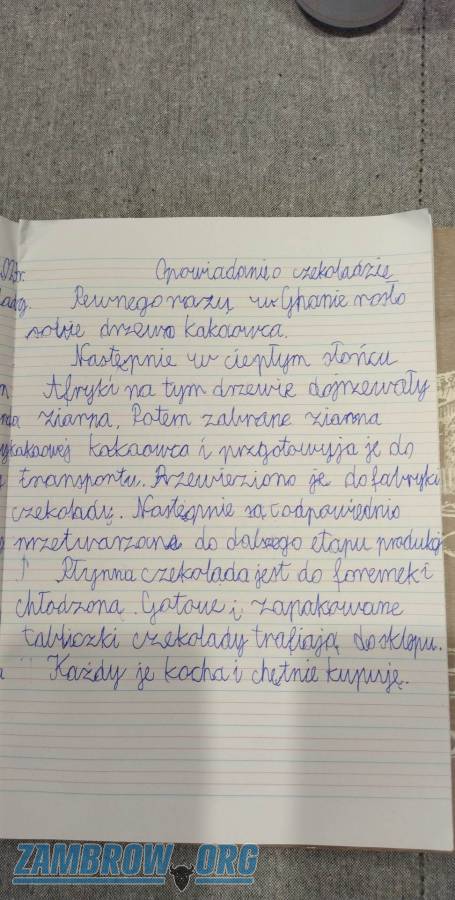 Opowiadanie o czekoladzie
Pewnego razu w Ghanie rosło
sobie drzewo kakaowca.
Następnie w ciepłym słońcu
Afryki na tym drzewie dojrzewały
ziarna. Potem zabrane ziarna
kakaowej kakaowca i przgotowyja je do
transportu. Przewieziono je do fabryki
czekoladę. Następnie są odpowiednio
przetwarzane do dalszego etapu produkcji
Płynna czekolada jest do foremek i
chłodzona. Gotowe i zapakowane
tabliczki czekolady trafiają do sklepu.
Każdy je kocha i chętnie kupuję.
ZAMBROW.ORG